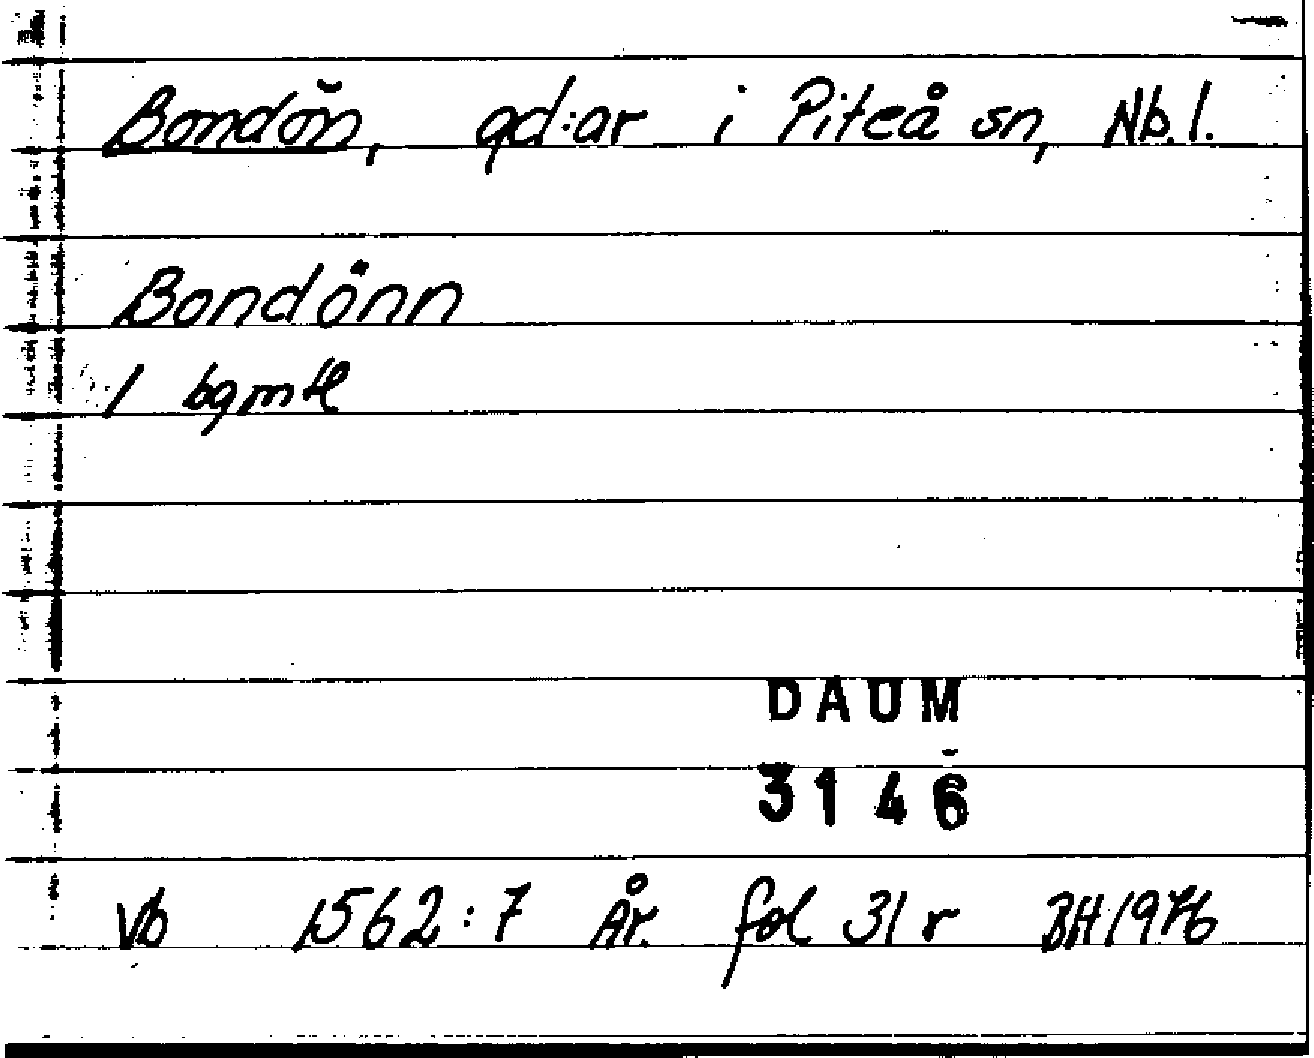 Bondön, gd:ar i Piteå sn, Nb.l.
Bondönn
1 bgmtl
DAUM
3146
Vb 1562:7 År. fol 31 r BH 1976